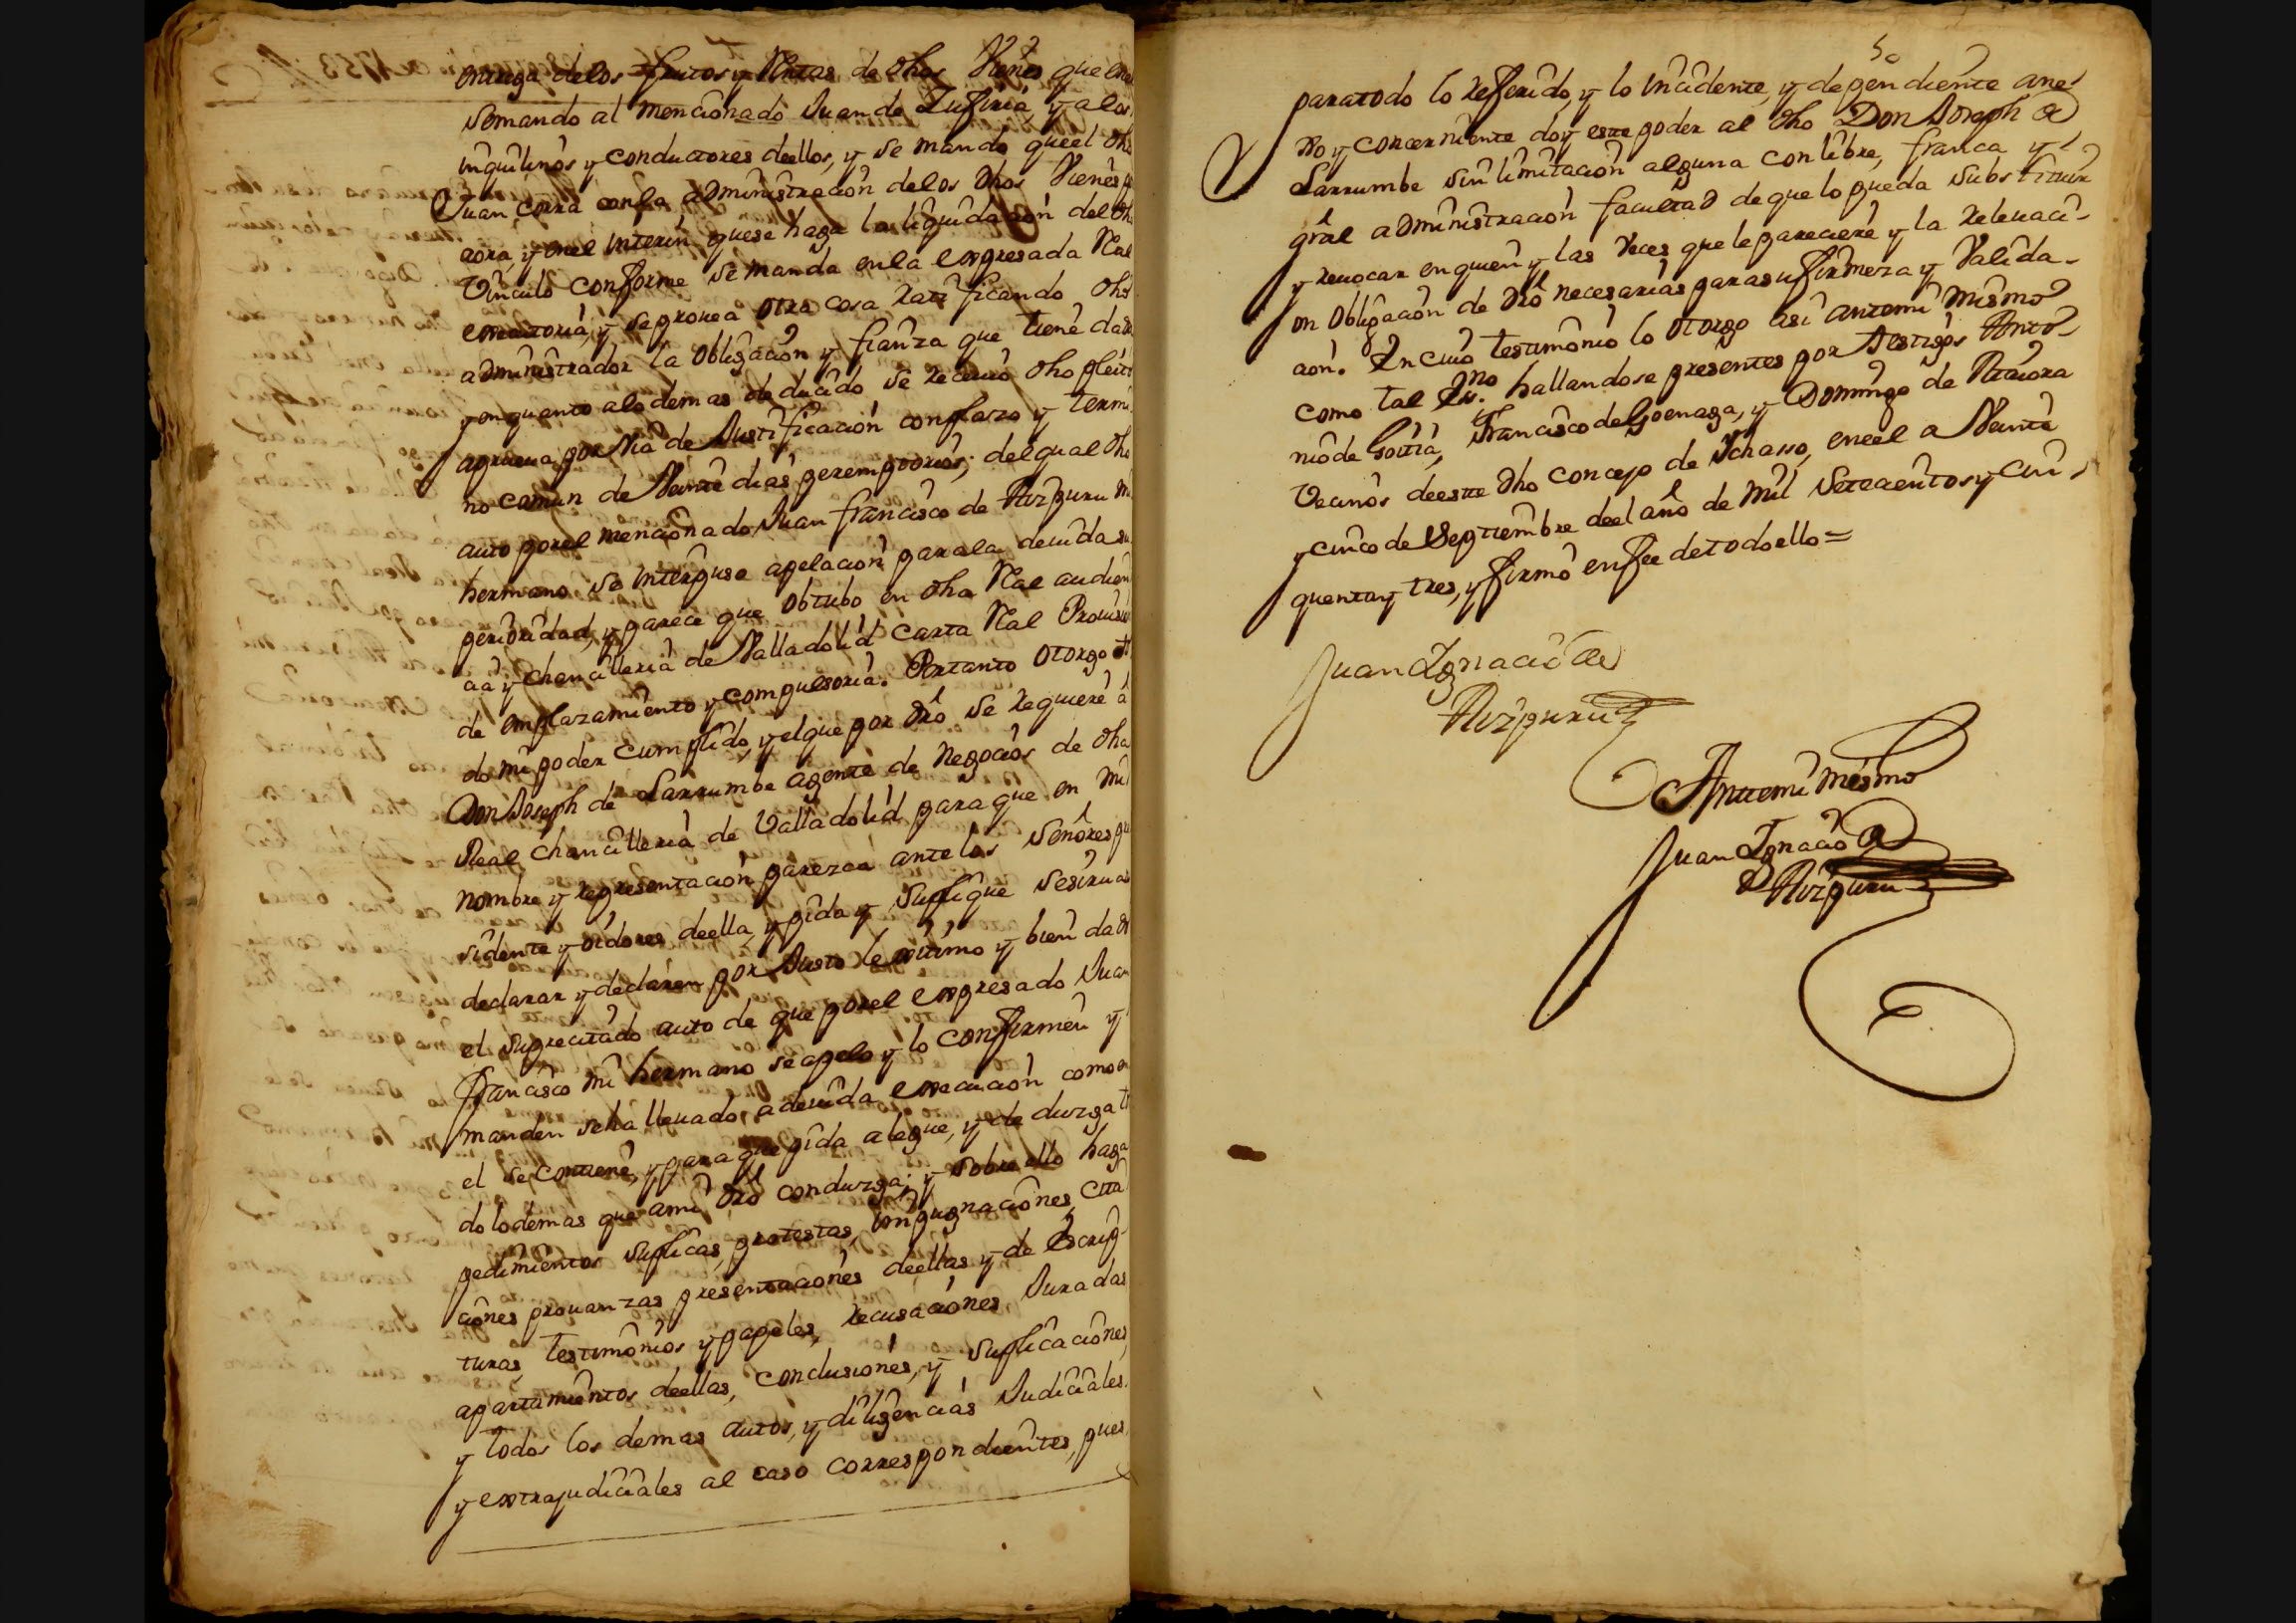 entrega delos frutos y Rentas de dhos Vienes que
se mando al mencionado Juan de Zufiria, y alos
inquilinos y conductores deellos, y se mando queel dho
Juan corra conla administracion delos dhos Vienes
aora, y enel interin quese haga la liquidacion del dho
Vinculo conforme se manda enla expresada Real
executoria, y se prouea otra cosa ratificando dho
administrador la obligacion y fianza que tiene dada
y en quanto alo demas deducido se reciuio dho pleito
aprueua por via de Justificacion conplazo y termi
no comun de Veinte dias peremptorios; del qual dho
auto porel mencionado Juan francisco de Aizpuru mi
hermano se interpuso apelacion parala deuida su
perioridad, y parece que obtubo en dha Real audien
cia y chancilleria de Valladolid carta Real Prouision
de emplazamiento y compulsoria. Portanto otorgo
do mi poder cumplido, y elque por dro se requiere a
Don Joseph de Larrumbe agente de Negocios de dha
Real chancilleria de Valladolid para que en mi
nombre y representacion parezca ante los Señores pre
sidente y oidores deella, y pida y suplique se siruan
declarar y declaren por Justo lexitimo y bien dado
el suprecitado auto de que porel expresado Juan
francisco mi hermano se apelo y lo confirmen y
manden sella lleuado, adeuida execucion como en
el se contiene, y para que pida alegue, y de duzga to
do lodemas que ami dro conduzga; y sobre ello haga
pedimientos suplicas, protestas, inpugnaciones, cita
ciones prouanzas presentaciones deellas y de Escrip-
turas, testimonios y papeles, recusaciones Juradas
apartamientos deellas, conclusiones, y suplicaciones,
y todos los demas autos, y diligencias Judiciales.
y extrajudiciales al caso correspondientes, pues,
5o
paratodo lo referido, y lo incidente, y dependiente ane-
xo y concerniente doy este poder al dho Don Joseph de
Larrumbe sin limitacion alguna con libre, franca y
gral administracion facultad de que lo pueda substituir
y reuocar en quien y las Veces que le pareciere y la releuaci-
on obligacion de dro necesarias para su firmeza y Valida-
cion. En cuio testimonio lo otorgo asi antemi mismo
como tal Essno. hallandose presentes por testigos Anto-
nio de Goitia, Francisco de Goenaga, y Domingo de
Vecinos deeste dho concejo de Ichasso, eneel a Veinte
y cinco de Septiembre deel año de mil Setecientos y cin-
quenta y tres, y firmo enfee detodo ello =
Juan Ignacio de
Aizpuru
Antemi mismo
Juan Ignacio de
Aizpuru